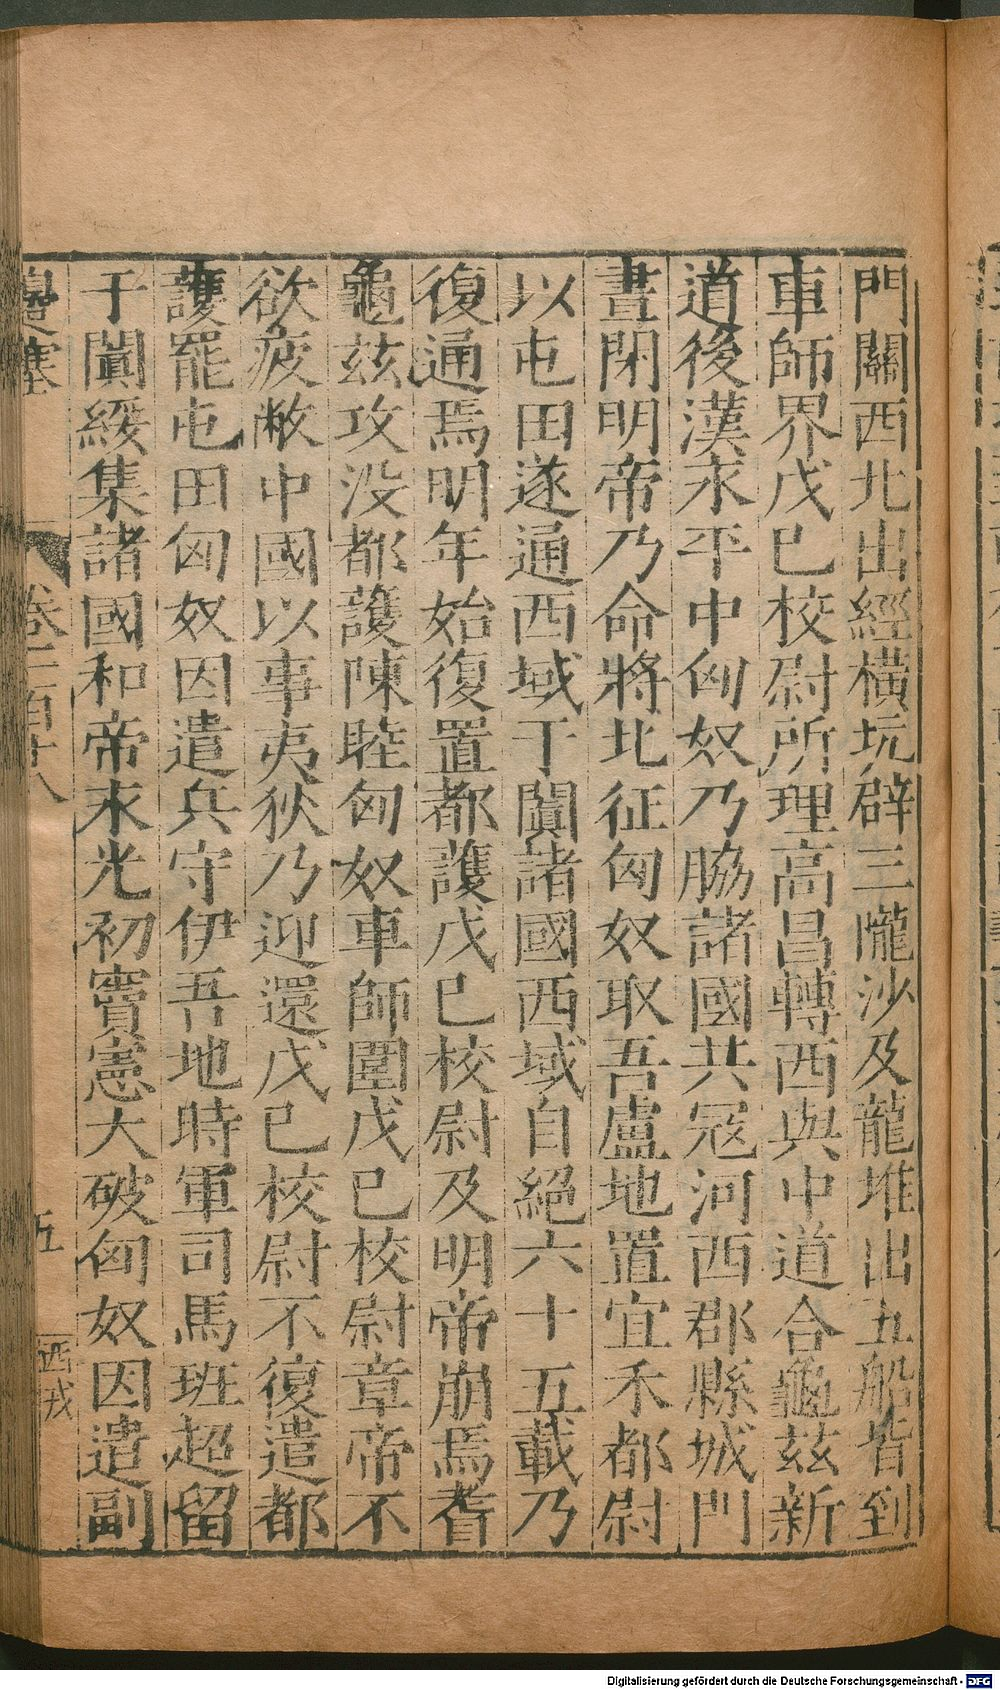 門關西北出經橫坑辟三隴沙及龍堆出五船皆到
車師界戊巳校尉所理高昌轉西與中道合龜茲新
道後漢永平中匈奴乃脇諸國共冦河西郡縣城門
晝閉明帝乃命將北征匈奴取吾盧地置宜禾都尉
以屯田遂通西域于闐諸國西域自絕六十五載乃
復通焉明年始復置都護戊巳校尉及明帝崩焉耆
龜茲攻没都護陳睦匈奴車師圍戊巳校尉章帝不
欲疲敝中國以事夷狄乃迎還戊巳校尉不復遣都
護罷屯田匈奴因遣兵守伊吾地時軍司馬班超留
于闐綏集諸國和帝永光初竇憲大破匈奴因遣副
邊塞 卷三百十八 五 西戎
Digitalisierung gefördert durch die Deutsche Forschungsgemeinschaft - DFG